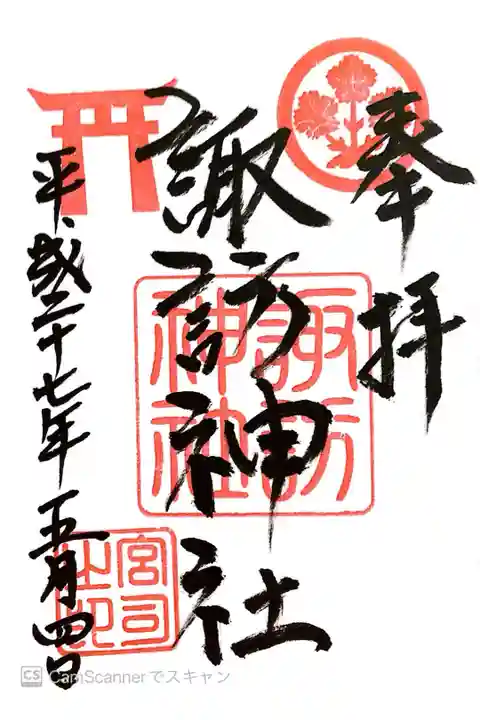 奉拝
諏訪神社
平成二十七年五月四日
諏訪
神社
宮司
之印
CS CamScannerでスキャン